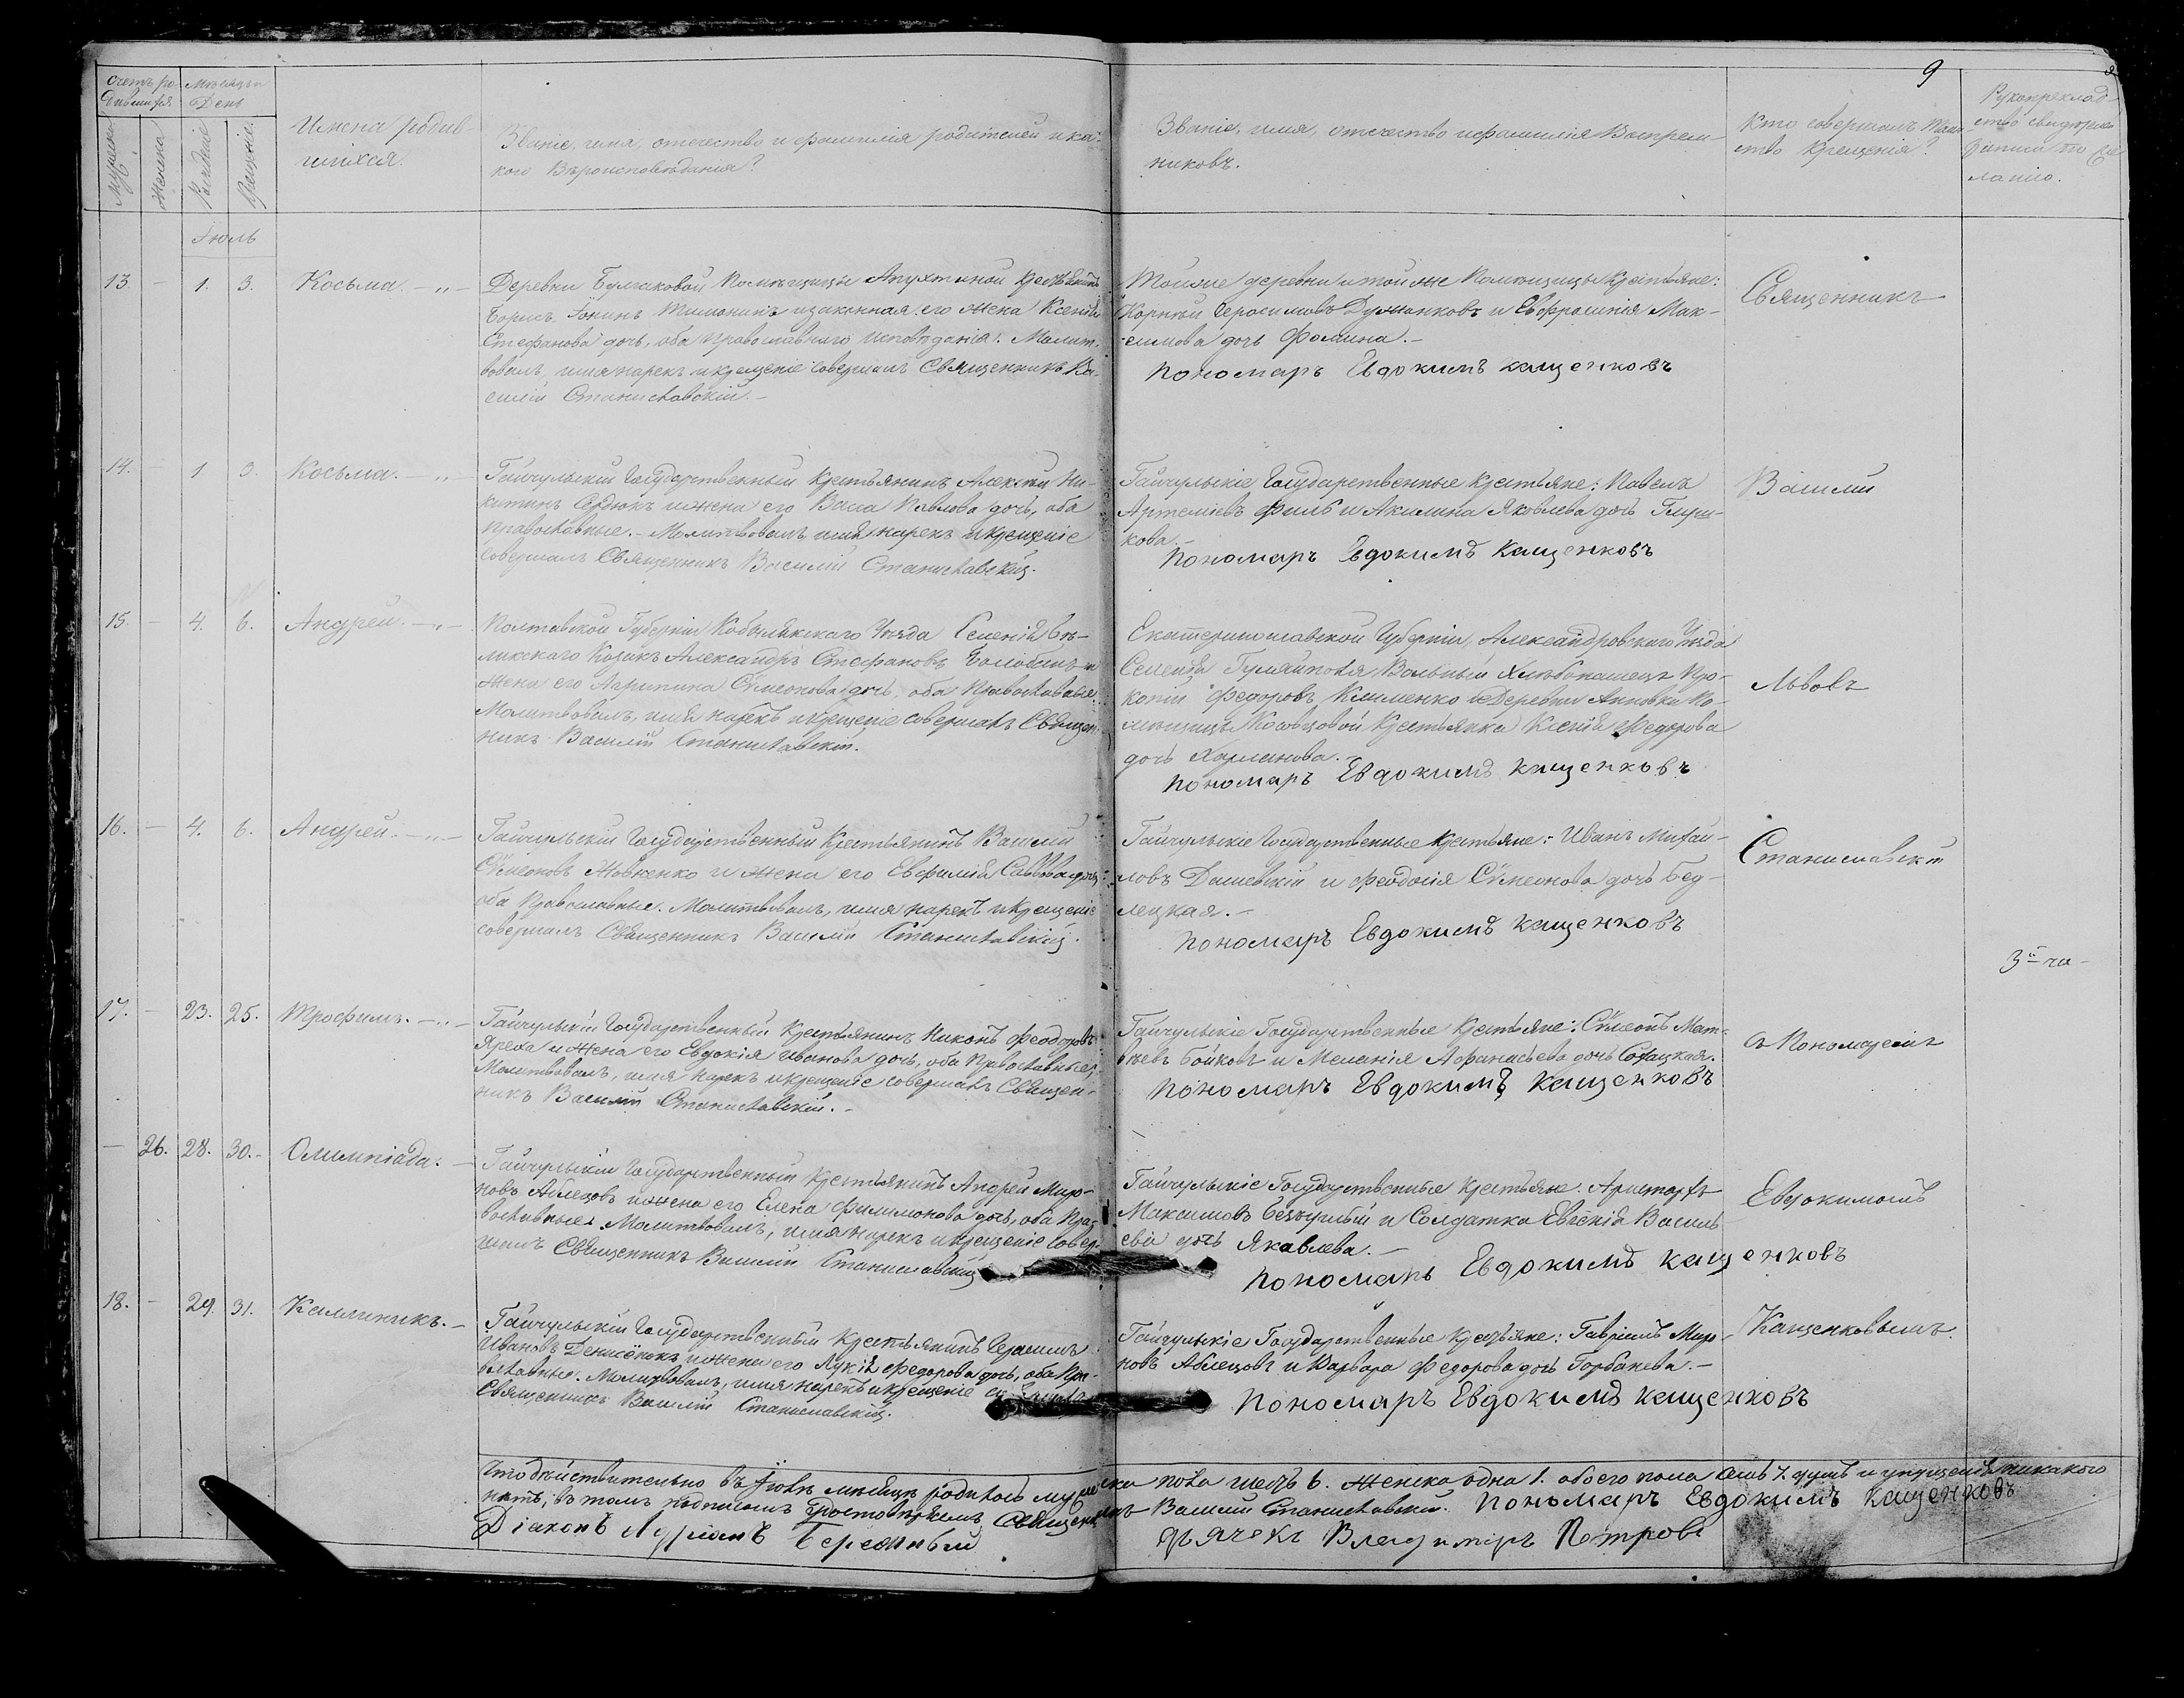 9
Счетъ ро-
дившихся
Мѣсяцъ и
День
Мужеска
Женска
Рожденіе
Крещеніе
Имена родив-
шихся.
Званіе, имя, отечество и фамилія родителей и ка-
кого Вѣроисповѣданія?
Званіе, имя, отечество и фамилія Воспрем-
никовъ.
Кто совершалъ Таин-
ство Крещенія?
Рукоприклад-
ство свидѣтелей
записи по же-
ланію.
Іюль
13. - 1. 3. Косьма. - „ -
Деревни Булаковой Помѣщицы Апухтиной Крестьянинъ
Борисъ и законная его жена Ксенія
Стефанова дочь, оба православнаго исповѣданія. Молит-
вовалъ, имя нарекъ и крещеніе совершалъ Священникъ Ва-
силій Станиславскій. -
Тойже деревни и той же Помѣщицы Крестьяне:
Корнилій Герасимовъ Дужанковъ и Евфросинія Мак-
симова дочь Фомина. -
Пономарь Евдокимъ Кащенковъ
Священникъ
14. - 1 3. Косьма. - „ -
Гайчульскій Государственный Крестьянинъ Алексѣй Ни-
китинъ Сердюкъ и жена его Васса Павлова дочь, оба
православные. - Молитвовалъ, имя нарекъ и крещеніе
совершалъ Священникъ Василій Станиславскій.
Гайчульскіе Государственные Крестьяне: Павелъ
Артеміевъ Филь и Акилина Яковлева дочь Глуш-
кова. -
Пономарь Евдокимъ Кащенковъ
Василій
15. - 4. 6. Андрей. - „ -
Полтавской Губерніи Кобылякскаго Уѣзда Селенія Бѣ-
ликскаго Козакъ Александръ Стефановъ и
жена его Агрипина Сѵмеонова дочь, оба Православные.
Молитвовалъ, имя нарекъ и крещеніе совершалъ Священ-
никъ Василій Станиславскій.
Екатеринославской Губерніи, Александровскаго Уѣзда
Селенія Гуляйполя Вольный Хлѣбопашецъ Про-
копій Федоровъ Клименко и Деревни Анновки По-
мѣщицы Косовцовой Крестьянка Ксенія Федорова
дочь Харланова.
Пономарь Евдокимъ Кащенковъ
Львовъ
16. - 4. 6. Андрей. - „ -
Гайчульскій Государственный Крестьянинъ Василій
Сѵмеоновъ Жовненко и жена его Евфимія Саввина дочь,
оба Православные. Молитвовалъ, имя нарекъ и крещеніе
совершалъ Священникъ Василій Станиславскій.
Гайчульскіе Государственные Крестьяне: Иванъ Михай-
ловъ Дашевскій и Феодосія Сѵмеонова дочь Бед-
лецкая. -
Пономарь Евдокимъ Кащенковъ
Станиславскій
17. - 23. 25. Трофимъ. - „ -
Гайчульскій Государственный Крестьянинъ Никонъ Феодоровъ
Яреха и жена его Евдокія Иванова дочь, оба Православные,
Молитвовалъ, имя нарекъ и крещеніе совершалъ Священ-
никъ Василій Станиславскій. -
Гайчульскіе Государственные Крестьяне: Сѵмеонъ Мат-
вѣевъ Бойковъ и Меланія Афанасьева дочь Сотацкая.
Пономарь Евдокимъ Кащенковъ
съ Пономаремъ
- 26. 28. 30. - Олимпіада. -
Гайчульскій Государственный Крестьянинъ Андрей Миро-
новъ Аблецовъ и жена его Елена Филимонова дочь, оба Пра-
вославные. Молитвовалъ, имя нарекъ и крещеніе совер-
шалъ Священникъ Василій Станиславскій
Гайчульскіе Государственные Крестьяне: Аристархъ
Максимовъ Безуглый и Солдатка Евгенія Василь-
ева дочь Яковлева. -
Пономарь Евдокимъ Кащенковъ
Евдокимомъ
18. - 29. 31. Каллиникъ. -
Гайчульскій Государственный Крестьянинъ Герасимъ
Ивановъ Денисенокъ и жена его Лукія Федорова дочь, оба Пра-
вославные. Молитвовалъ, имя нарекъ и крещеніе
Священникъ Василій Станиславскій.
Гайчульскіе Государственные Крестьяне: Гавріилъ Миро-
новъ Аблецовъ и Варвара Федорова дочь Горбанева. -
Пономарь Евдокимъ Кащенковъ
Кащенковымъ.
Что дѣйствительно въ Іюлѣ мѣсяцѣ родилось мужеска пола шесть 6. женска одна 1. обоего пола семь 7. душъ и упущенія никакого
нѣтъ, въ томъ подписомъ удостовѣряемъ Священникъ Василій Станиславскій. Пономарь Евдокимъ Кащенковъ
Діаконъ Бережный дьячекъ Владимиръ Петровъ